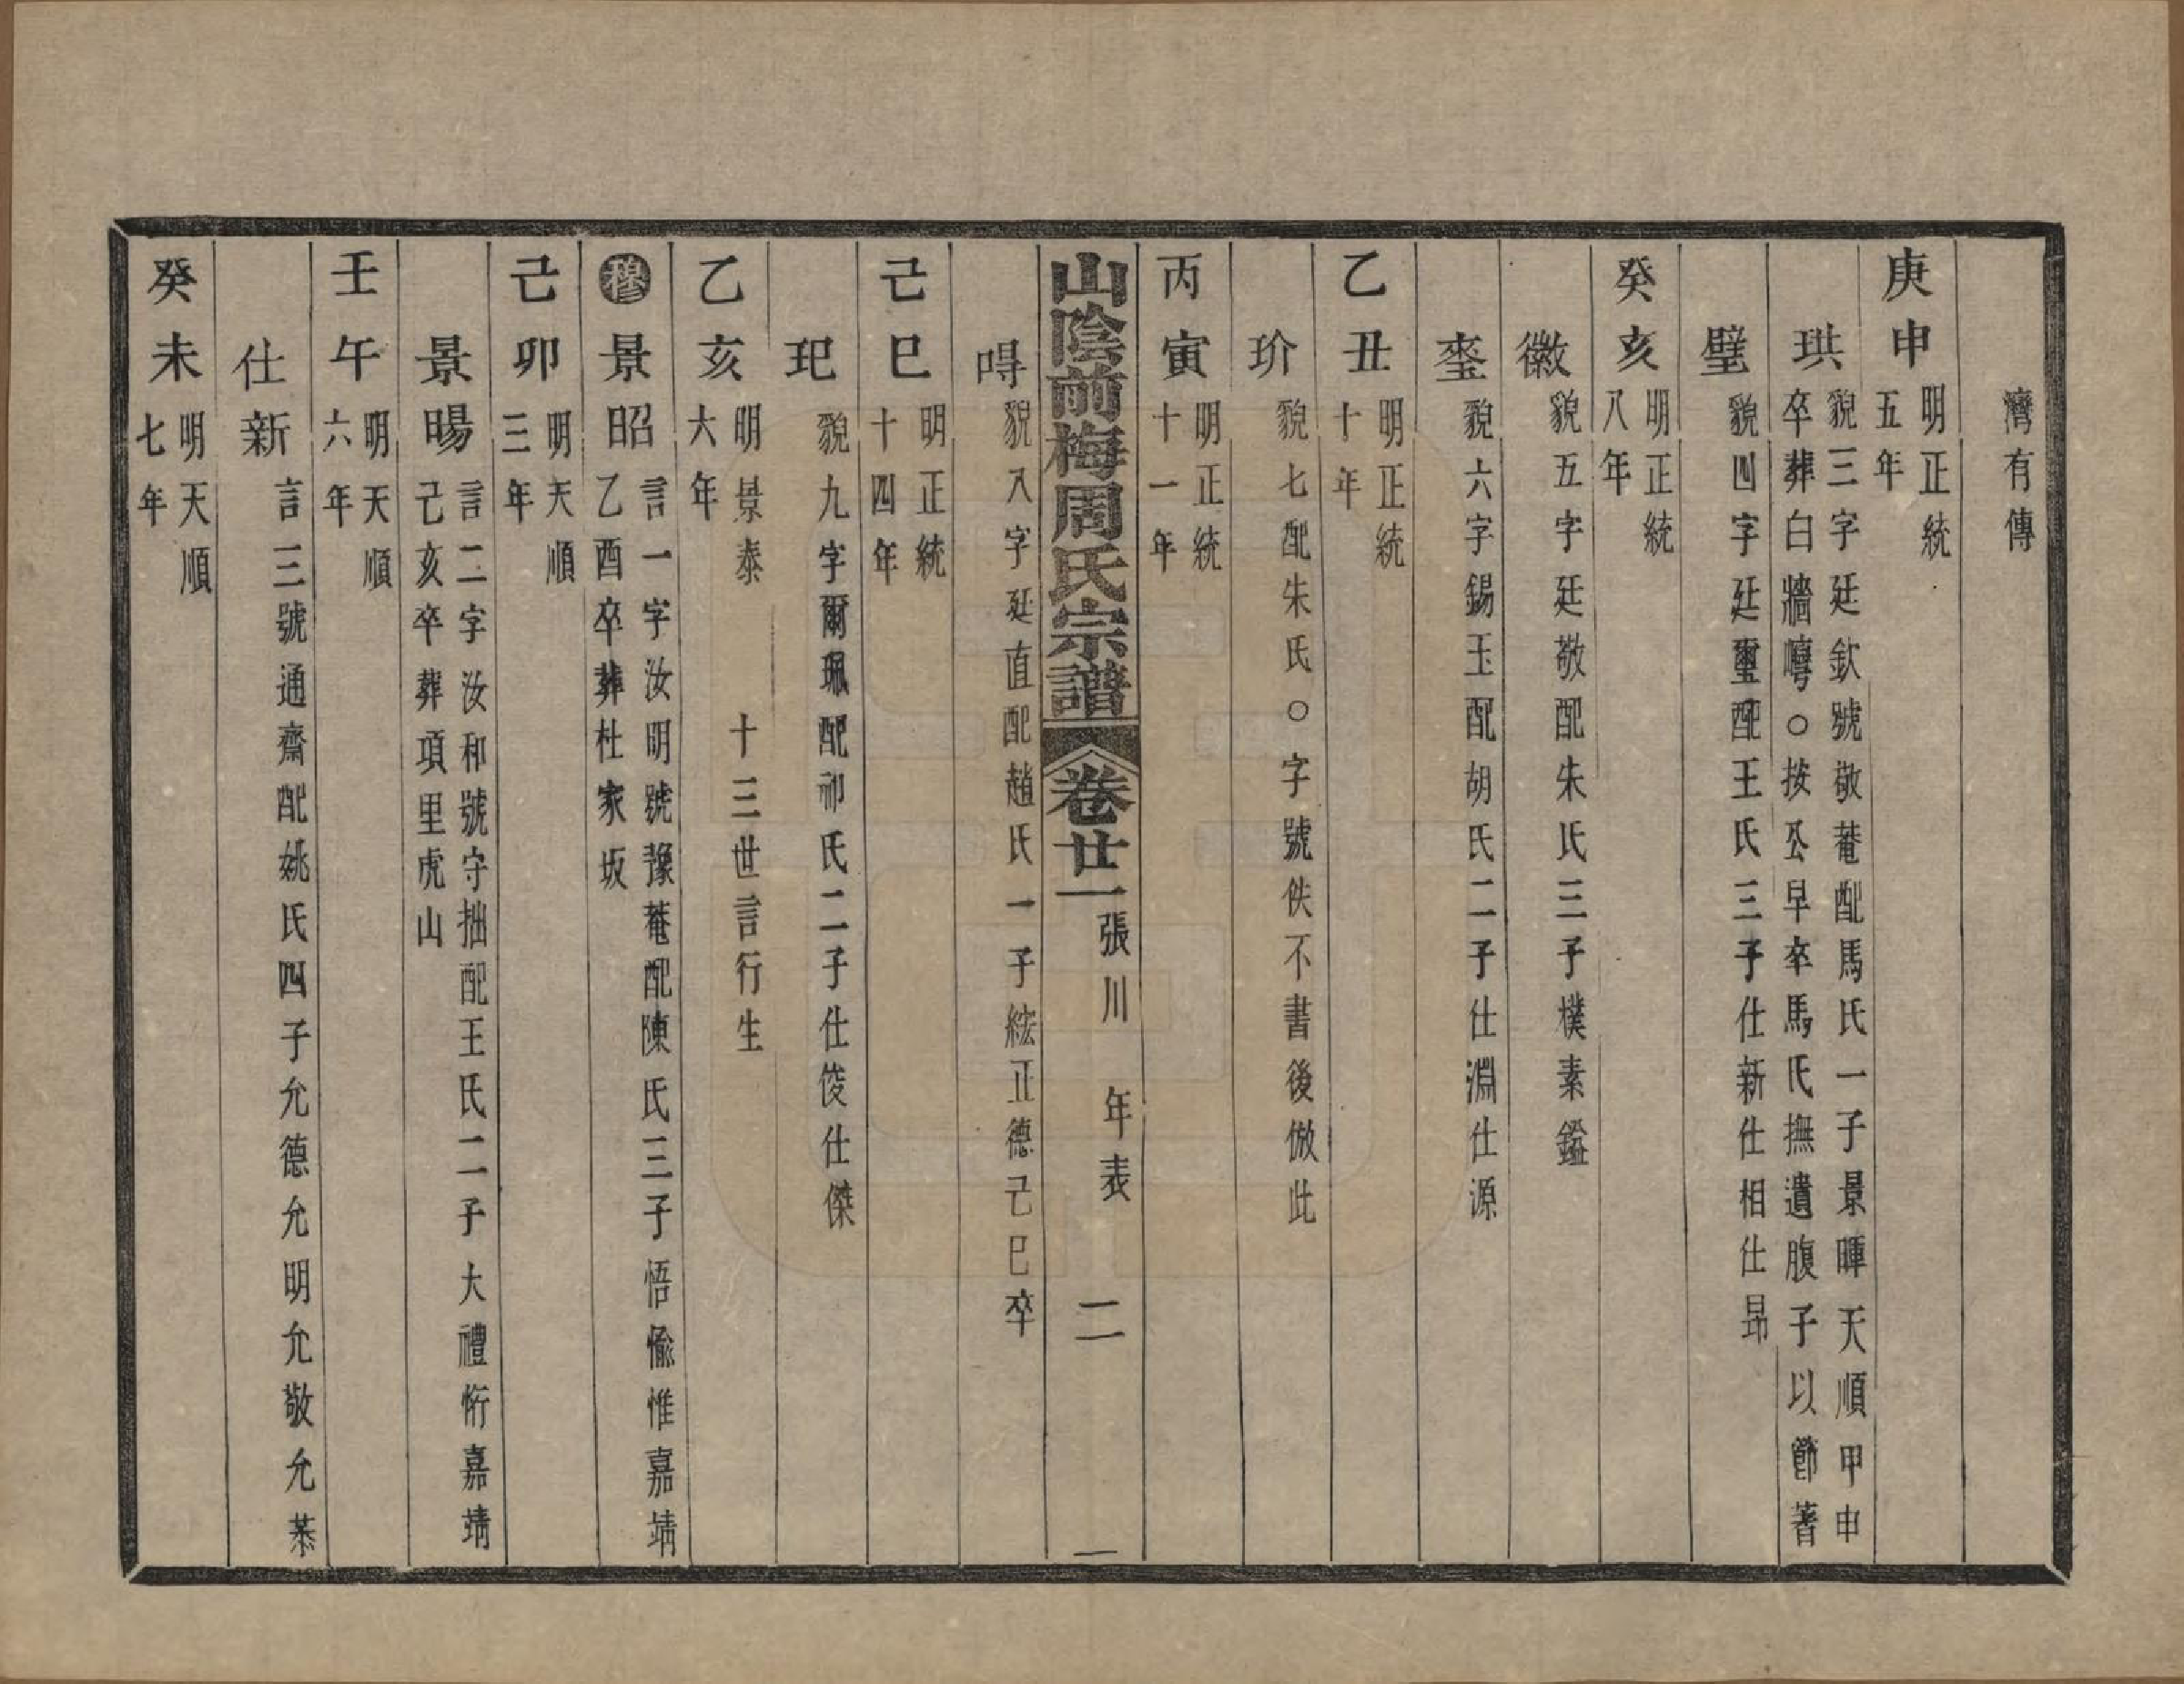 濟有傳
庚申 明正統五年
珙 貌三字廷欽號敬菴配馬氏一子景暉天順甲申
卒葬白牆嘷○按公早卒馬氏撫遺腹子以節著
璧 貌四字廷璽配王氏三子仕新仕相仕昂
癸亥 明正統八年
徽 貌五字廷敬配朱氏三子樸素鎰
銮 貌六字錫玉配胡氏二子仕淵仕源
乙丑 明正統十年
玠 貌七配朱氏○字號佚不書後倣此
丙寅 明正統十一年
山陰前梅周氏宗譜 卷廿一 張川 年表 二
貌八字廷直配趙氏一子綋正德己巳卒
己巳 明正統十四年
玘 貌九字爾珮配祁氏二子仕俊仕傑
乙亥 明景泰六年 十三世言行生
穆 景昭 言一字汝明號豫菴配陳氏三子悟愉惟嘉靖
乙酉卒葬杜家坂
己卯 明天順三年
景暘 言二字汝和號守拙配王氏二子大禮恎嘉靖
己亥卒葬項里虎山
壬午 明天順六年
仕新 言三號通齋配姚氏四子允德允明允敬允恭
癸未 明天順七年